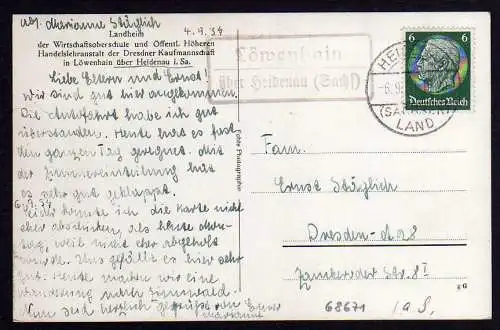 Abs. Marianne Stüglich
4.9.34
Landheim
der Wirtschaftsoberschule und Öffentl. Höheren
Handelslehranstalt der Dresdner Kaufmannschaft
in Löwenhain über Heidenau i. Sa.
Liebe Eltern und Ernst!
Wir sind gut hier angekommen.
Die Autofahrt habe ich gut
überstanden. Heute hat es fast
den ganzen Tag geregnet. Mit
der Zimmereinteilung hat
es sehr gut geklappt.
6.9.34
Leider konnte ich die Karte nicht
eher abschicken, als heute
weil nicht eher abgeholt
wurde. Uns gefällt es hier sehr
gut. Heute machen wir eine
Wanderung nach Zinnwald.
Nun seid herzlich gegrüßt von Eurer
Marianne
Löwenhain
über Heidenau (Sachs)
6
Deutsches Reich
(SACHSEN)
LAND
Echte Photographie
Fam.
Ernst Stüglich
Dresden-A 28
Str. 8 I
68671